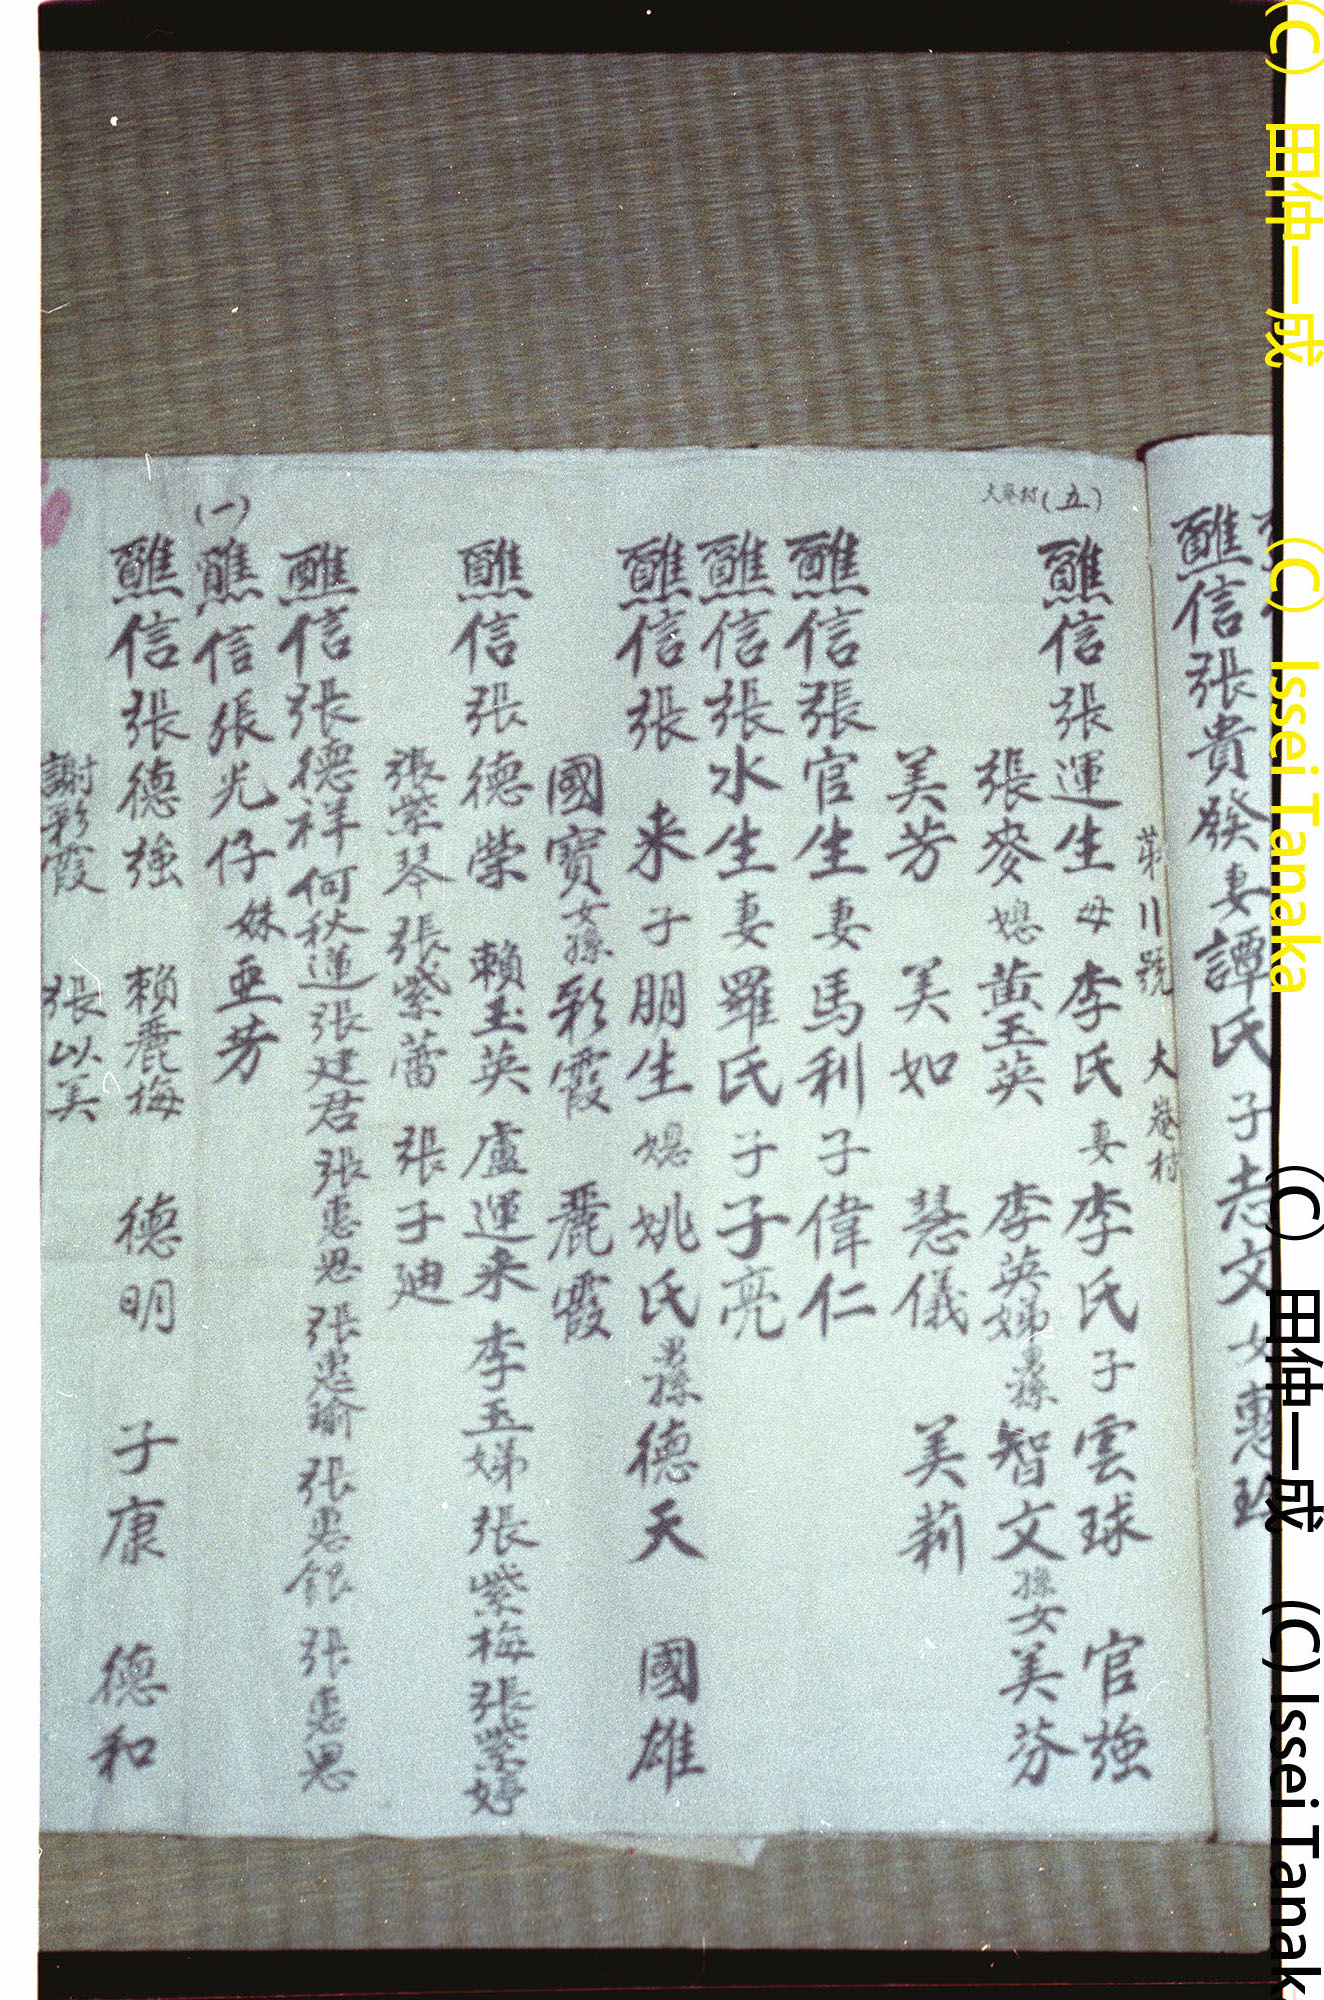 醮信張貴發妻譚氏子志文女惠玲
第川號 大巷村
(五)
醮信張運生母李氏妻李氏子雲球 官強
張麥媳黃玉英 李英娣男孫智文孫女美芬
美芳 美如 慧儀 美莉
醮信張官生妻馬利子偉仁
醮信張水生妻羅氏子子亮
醮信張来子朋生媳姚氏男孫德天 國雄
國寶女孫彩霞 麗霞
醮信張德榮 賴玉英 盧運来 李玉娣 張紫梅 張紫婷
張紫琴 張紫蕾 張子廸
醮信張德祥 何秋蓮 張建君 張惠恩 張惠瑜 張惠銀 張惠思
(一)
醮信張光仔妹亜芳
醮信張德強 賴麗梅 德明 子康 德和
謝彩霞 張以美
(C) 田仲一成 (C) Issei Tanaka (C) 田仲一成 (C) Issei Tanak